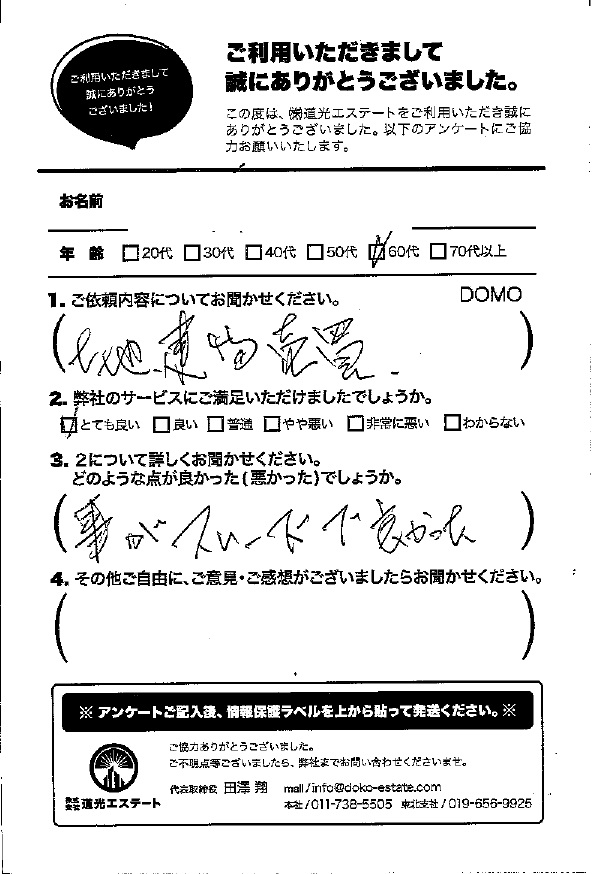 ご利用いただきまして
誠にありがとう
ございました!
ご利用いただきまして
誠にありがとうございました。
この度は、㈱道光エステートをご利用いただき誠に
ありがとうございました。以下のアンケートにご協
力お願いいたします。
お名前
年 齢 □20代 □30代 □40代 □50代 ☑60代 □70代以上
1. ご依頼内容についてお聞かせください。 DOMO
(土地.建物売買.)
2. 弊社のサービスにご満足いただけましたでしょうか。
☑とても良い □良い □普通 □やや悪い □非常に悪い □わからない
3. 2について詳しくお聞かせください。
どのような点が良かった(悪かった)でしょうか。
(事がスムードで良かった)
4. その他ご自由に、ご意見・ご感想がございましたらお聞かせください。
※ アンケートご記入後、情報保護ラベルを上から貼って発送ください。※
ご協力ありがとうございました。
ご不明点等ございましたら、弊社までお問い合わせくださいませ。
代表取締役 田澤 翔 mail/info@doko-estate.com
株式会社道光エステート 本社/011-738-5505 東北支社/019-656-9926